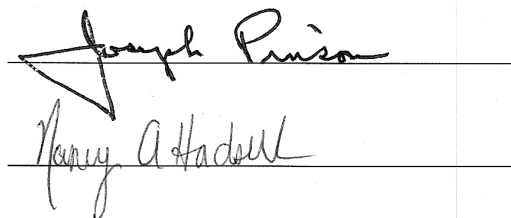 Joseph Pinson
Nancy A Hadsell